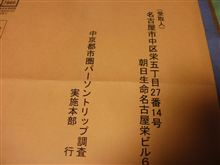 (受取人)
名古屋市中区栄五丁目27番14号
朝日生命名古屋栄ビル6
中京都市圏パーソントリップ調査
実施本部
行